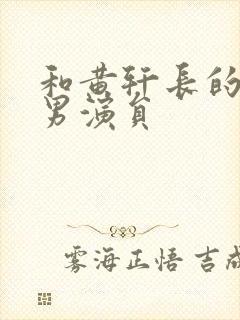 和黄轩長的
男演員
雾海正悟 吉成